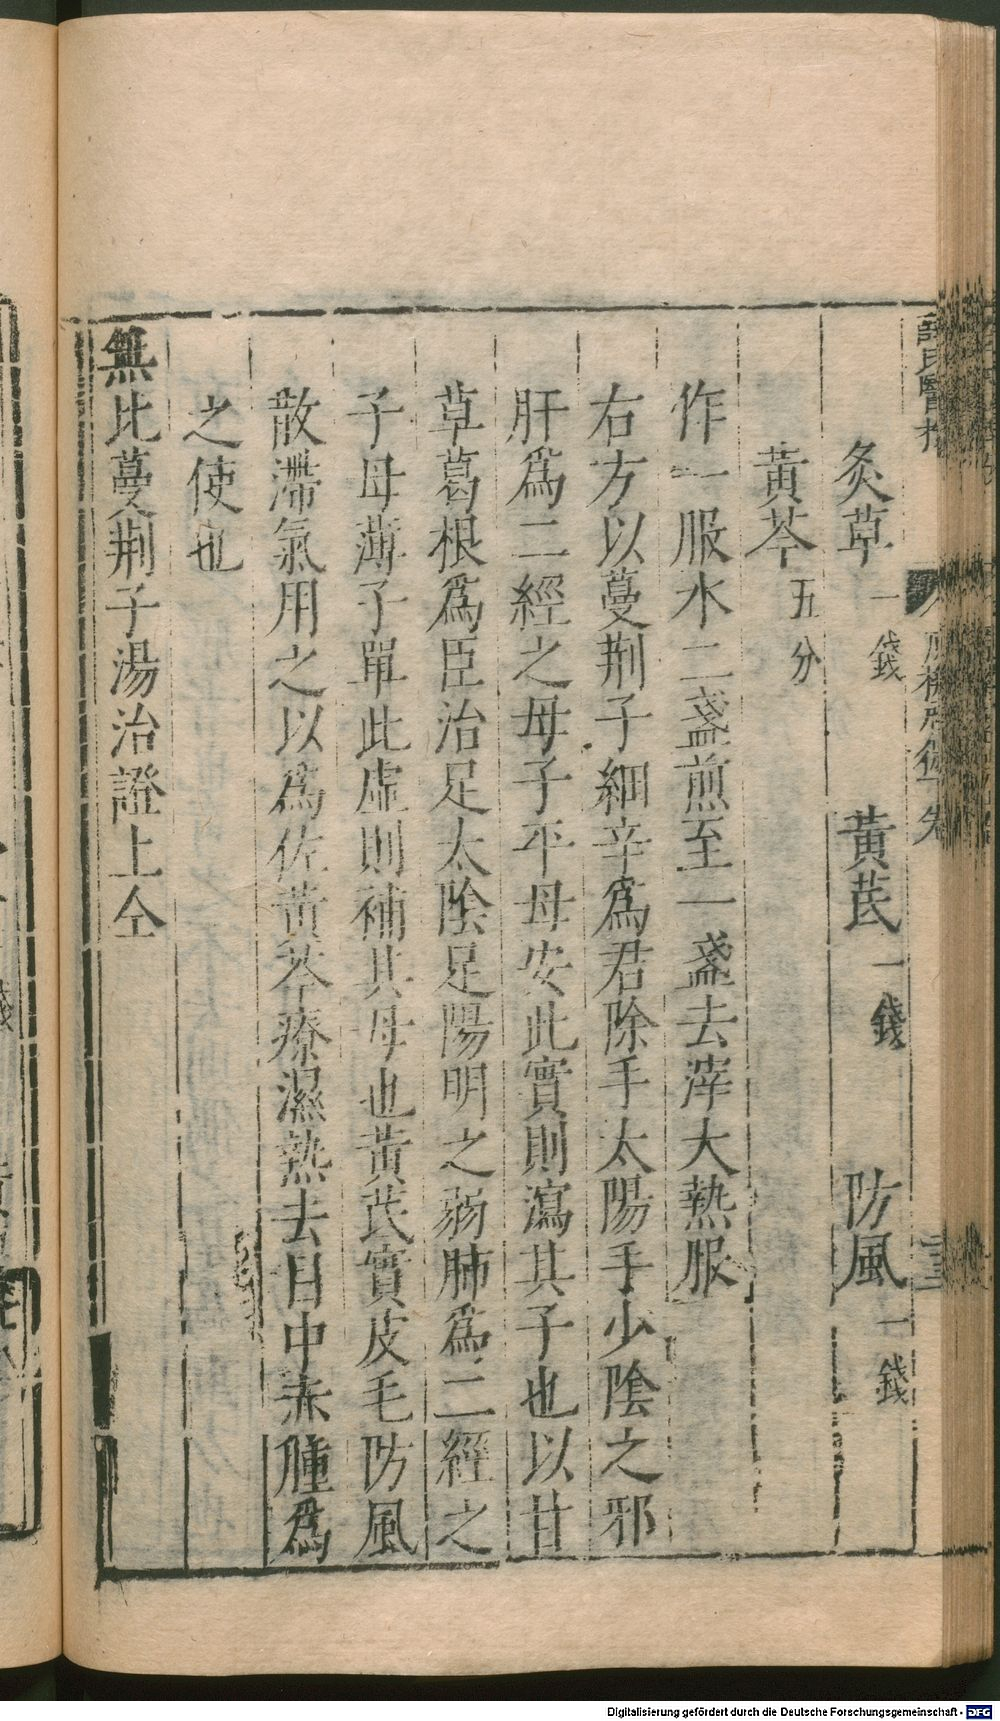 炙草一錢　黃芪一錢　防風一錢
黃芩五分
作一服水二盞煎至一盞去滓大熱服
右方以蔓荆子細辛爲君除手太陽手少陰之邪
肝爲二經之母子平母安此實則瀉其子也以甘
草葛根爲臣治足太陰足陽明之弱肺爲二經之
子母薄子單此虛則補其母也黃芪實皮毛防風
散滯氣用之以爲佐黃芩療濕熱去目中赤腫爲
之使也
無比蔓荆子湯治證上仝
Digitalisierung gefördert durch die Deutsche Forschungsgemeinschaft - DFG